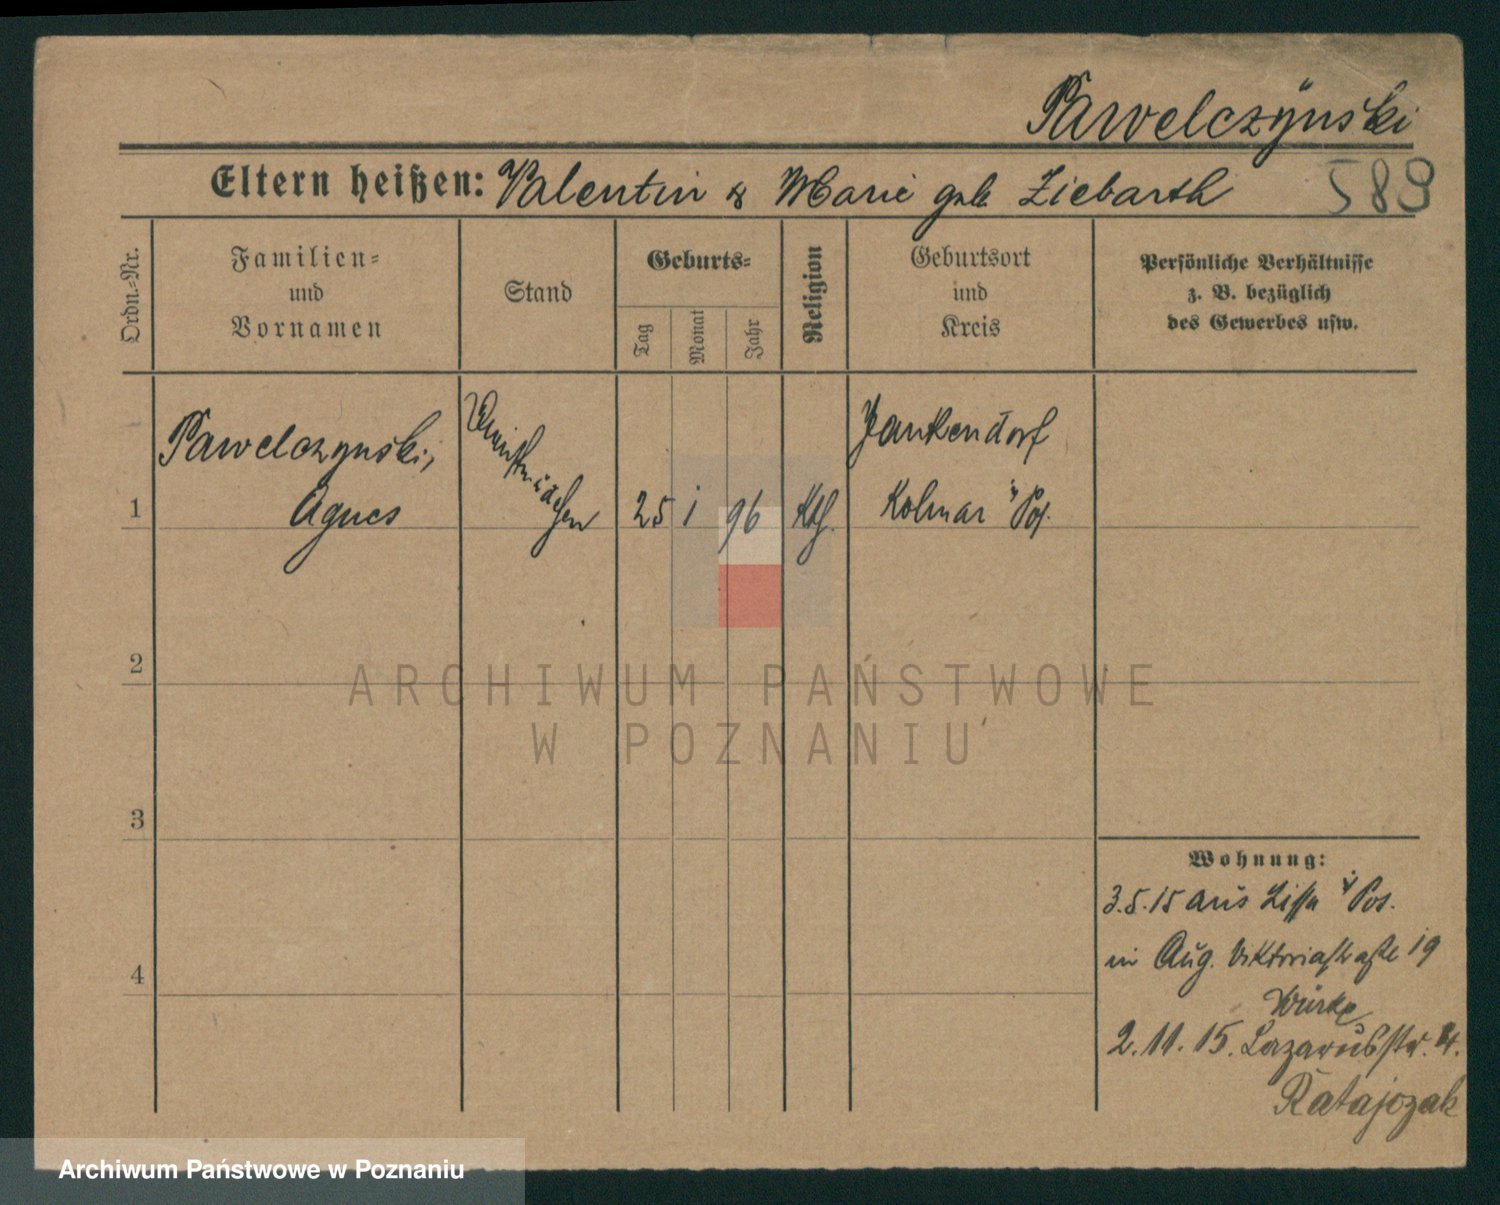 Pawelczÿnski
Eltern heißen: Valentin & Marie geb. Ziebarth 589
Ordn.-Nr.
Familien-
und
Vornamen
Stand
Geburts-
Tag
Monat
Jahr
Religion
Geburtsort
und
Kreis
Persönliche Verhältnisse
z. B. bezüglich
des Gewerbes usw.
1
Pawelczynski,
Agnes
Dienstmädchen
25 i 96 Kth.
Jankendorf
Kolmar i/Pos.
2
3
4
Wohnung:
3.5.15 aus Lissa i/Pos.
in Aug. Viktoriastraße 19
2.11.15. Lazarusstr.
Ratajczak
ARCHIWUM PAŃSTWOWE
W POZNANIU
Archiwum Państwowe w Poznaniu